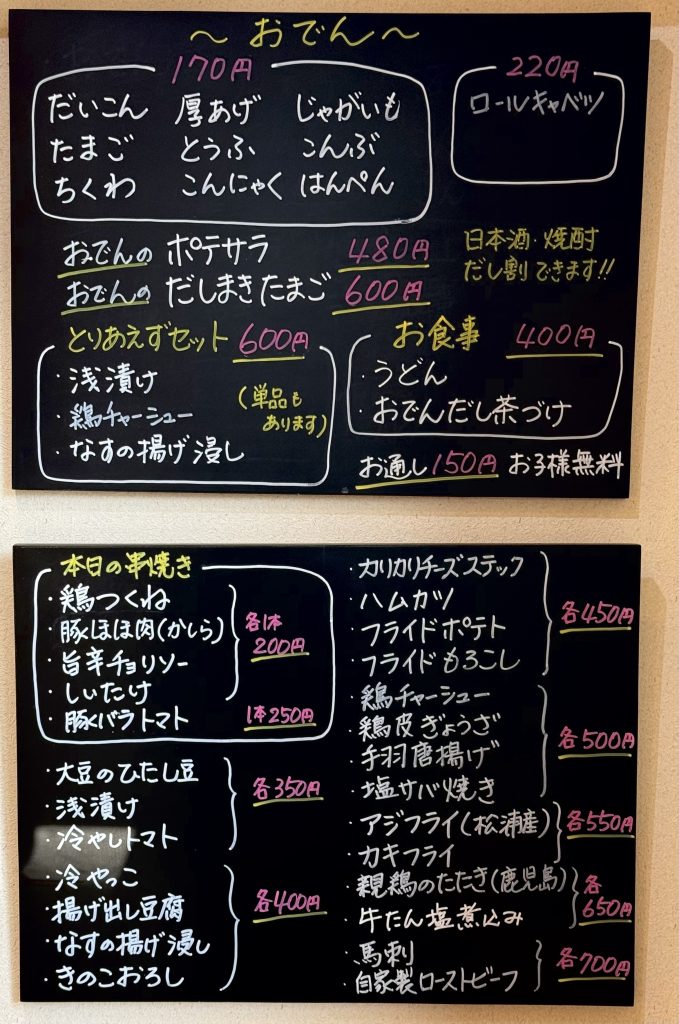 ～おでん～
170円
だいこん 厚あげ じゃがいも
たまご とうふ こんぶ
ちくわ こんにゃく はんぺん
220円
ロールキャベツ
おでんの ポテサラ 480円
おでんの だしまきたまご 600円
日本酒・焼酎
だし割できます!!
とりあえずセット 600円
・浅漬け
・鶏チャーシュー
・なすの揚げ浸し
(単品も
あります)
お食事 400円
・うどん
・おでんだし茶づけ
お通し 150円 お子様無料
本日の串焼き
・鶏つくね
・豚ほほ肉(かしら)
・旨辛チョリソー
・しいたけ
各1本
200円
・豚バラトマト 1本250円
・大豆のひたし豆
・浅漬け
・冷やしトマト
各350円
・冷やっこ
・揚げ出し豆腐
・なすの揚げ浸し
・きのこおろし
各400円
・カリカリチーズスティック
・ハムカツ
・フライドポテト
・フライドもろこし
各450円
・鶏チャーシュー
・鶏皮ぎょうざ
・手羽唐揚げ
・塩サバ焼き
各500円
・アジフライ(松浦産)
・カキフライ
各550円
・親鶏のたたき(鹿児島)
・牛たん塩煮込み
各
650円
・馬刺
・自家製ローストビーフ
各700円